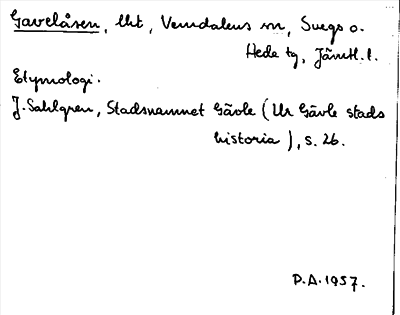 Gavelåsen, lht, Vemdalens sn, Svegs o.
Hede tg, Jämtl. l.
Etymologi.
J. Sahlgren, Stadsnamnet Gävle (Ur Gävle stads
historia), s. 26.
P.A. 1957.